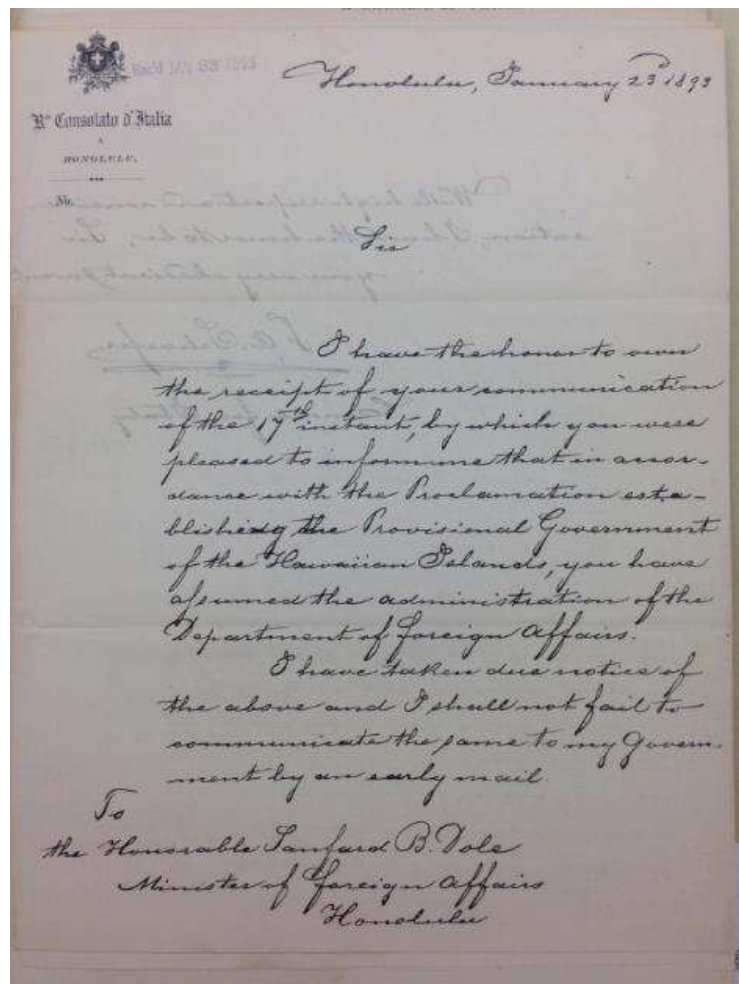 Rec'd JAN 23 1893
Honolulu, January 23d 1893
Ro Consolato d'Italia
HONOLULU.
No.
Sir
I have the honor to own
the receipt of your communication
of the 17th instant, by which you were
pleased to inform me that in accor-
dance with the Proclamation esta-
blishing the Provisional Government
of the Hawaiian Islands, you have
assumed the administration of the
Department of foreign Affairs.
I have taken due notice of
the above and I shall not fail to
communicate the same to my Govern-
ment by an early mail.
To
the Honorable Sanford B. Dole
Minister of foreign Affairs
Honolulu